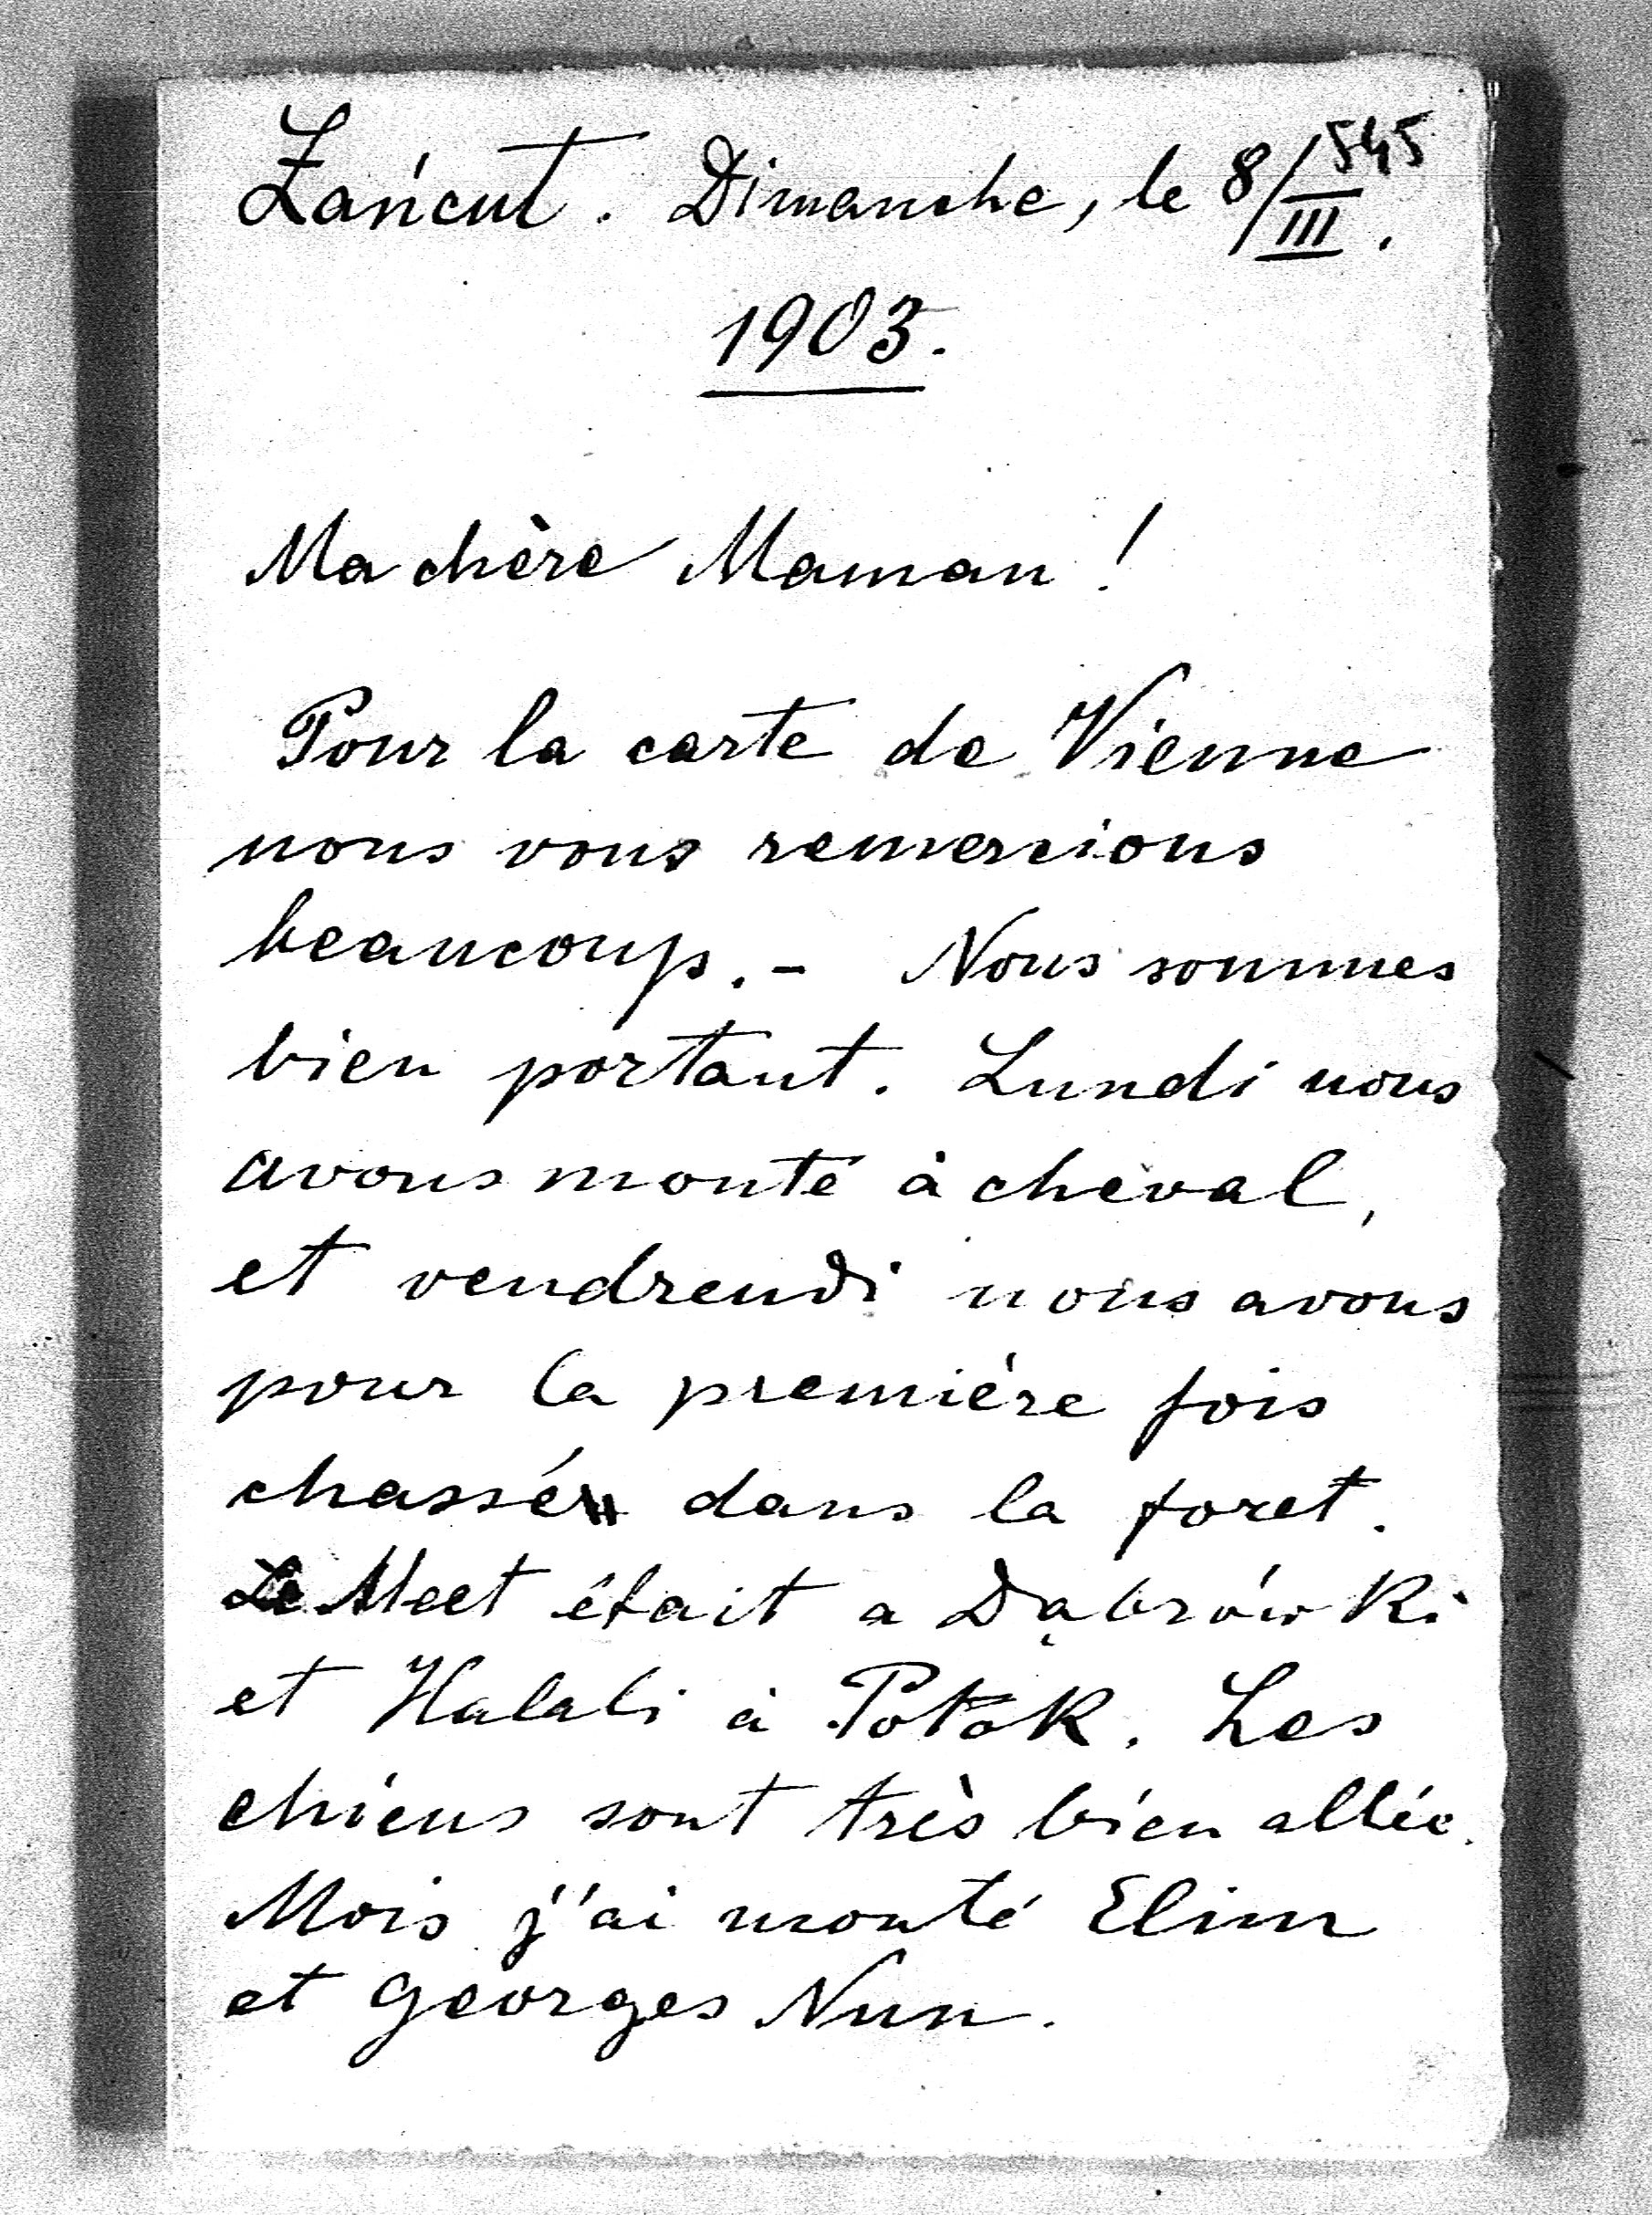 Łańcut. Dimanche, le 8/III. 545
1903.
Ma chère Maman!
Pour la carte de Vienne
nous vous remercions
beaucoup. - Nous sommes
bien portant. Lundi nous
avons monté à cheval,
et vendrendi nous avons
pour la premiére fois
chassé dans la foret.
Le Meet était a Dąbrówki
et Halali à Potok. Les
chiens sont très bien allée.
Mois j'ai monté Elim
et Georges Nun.